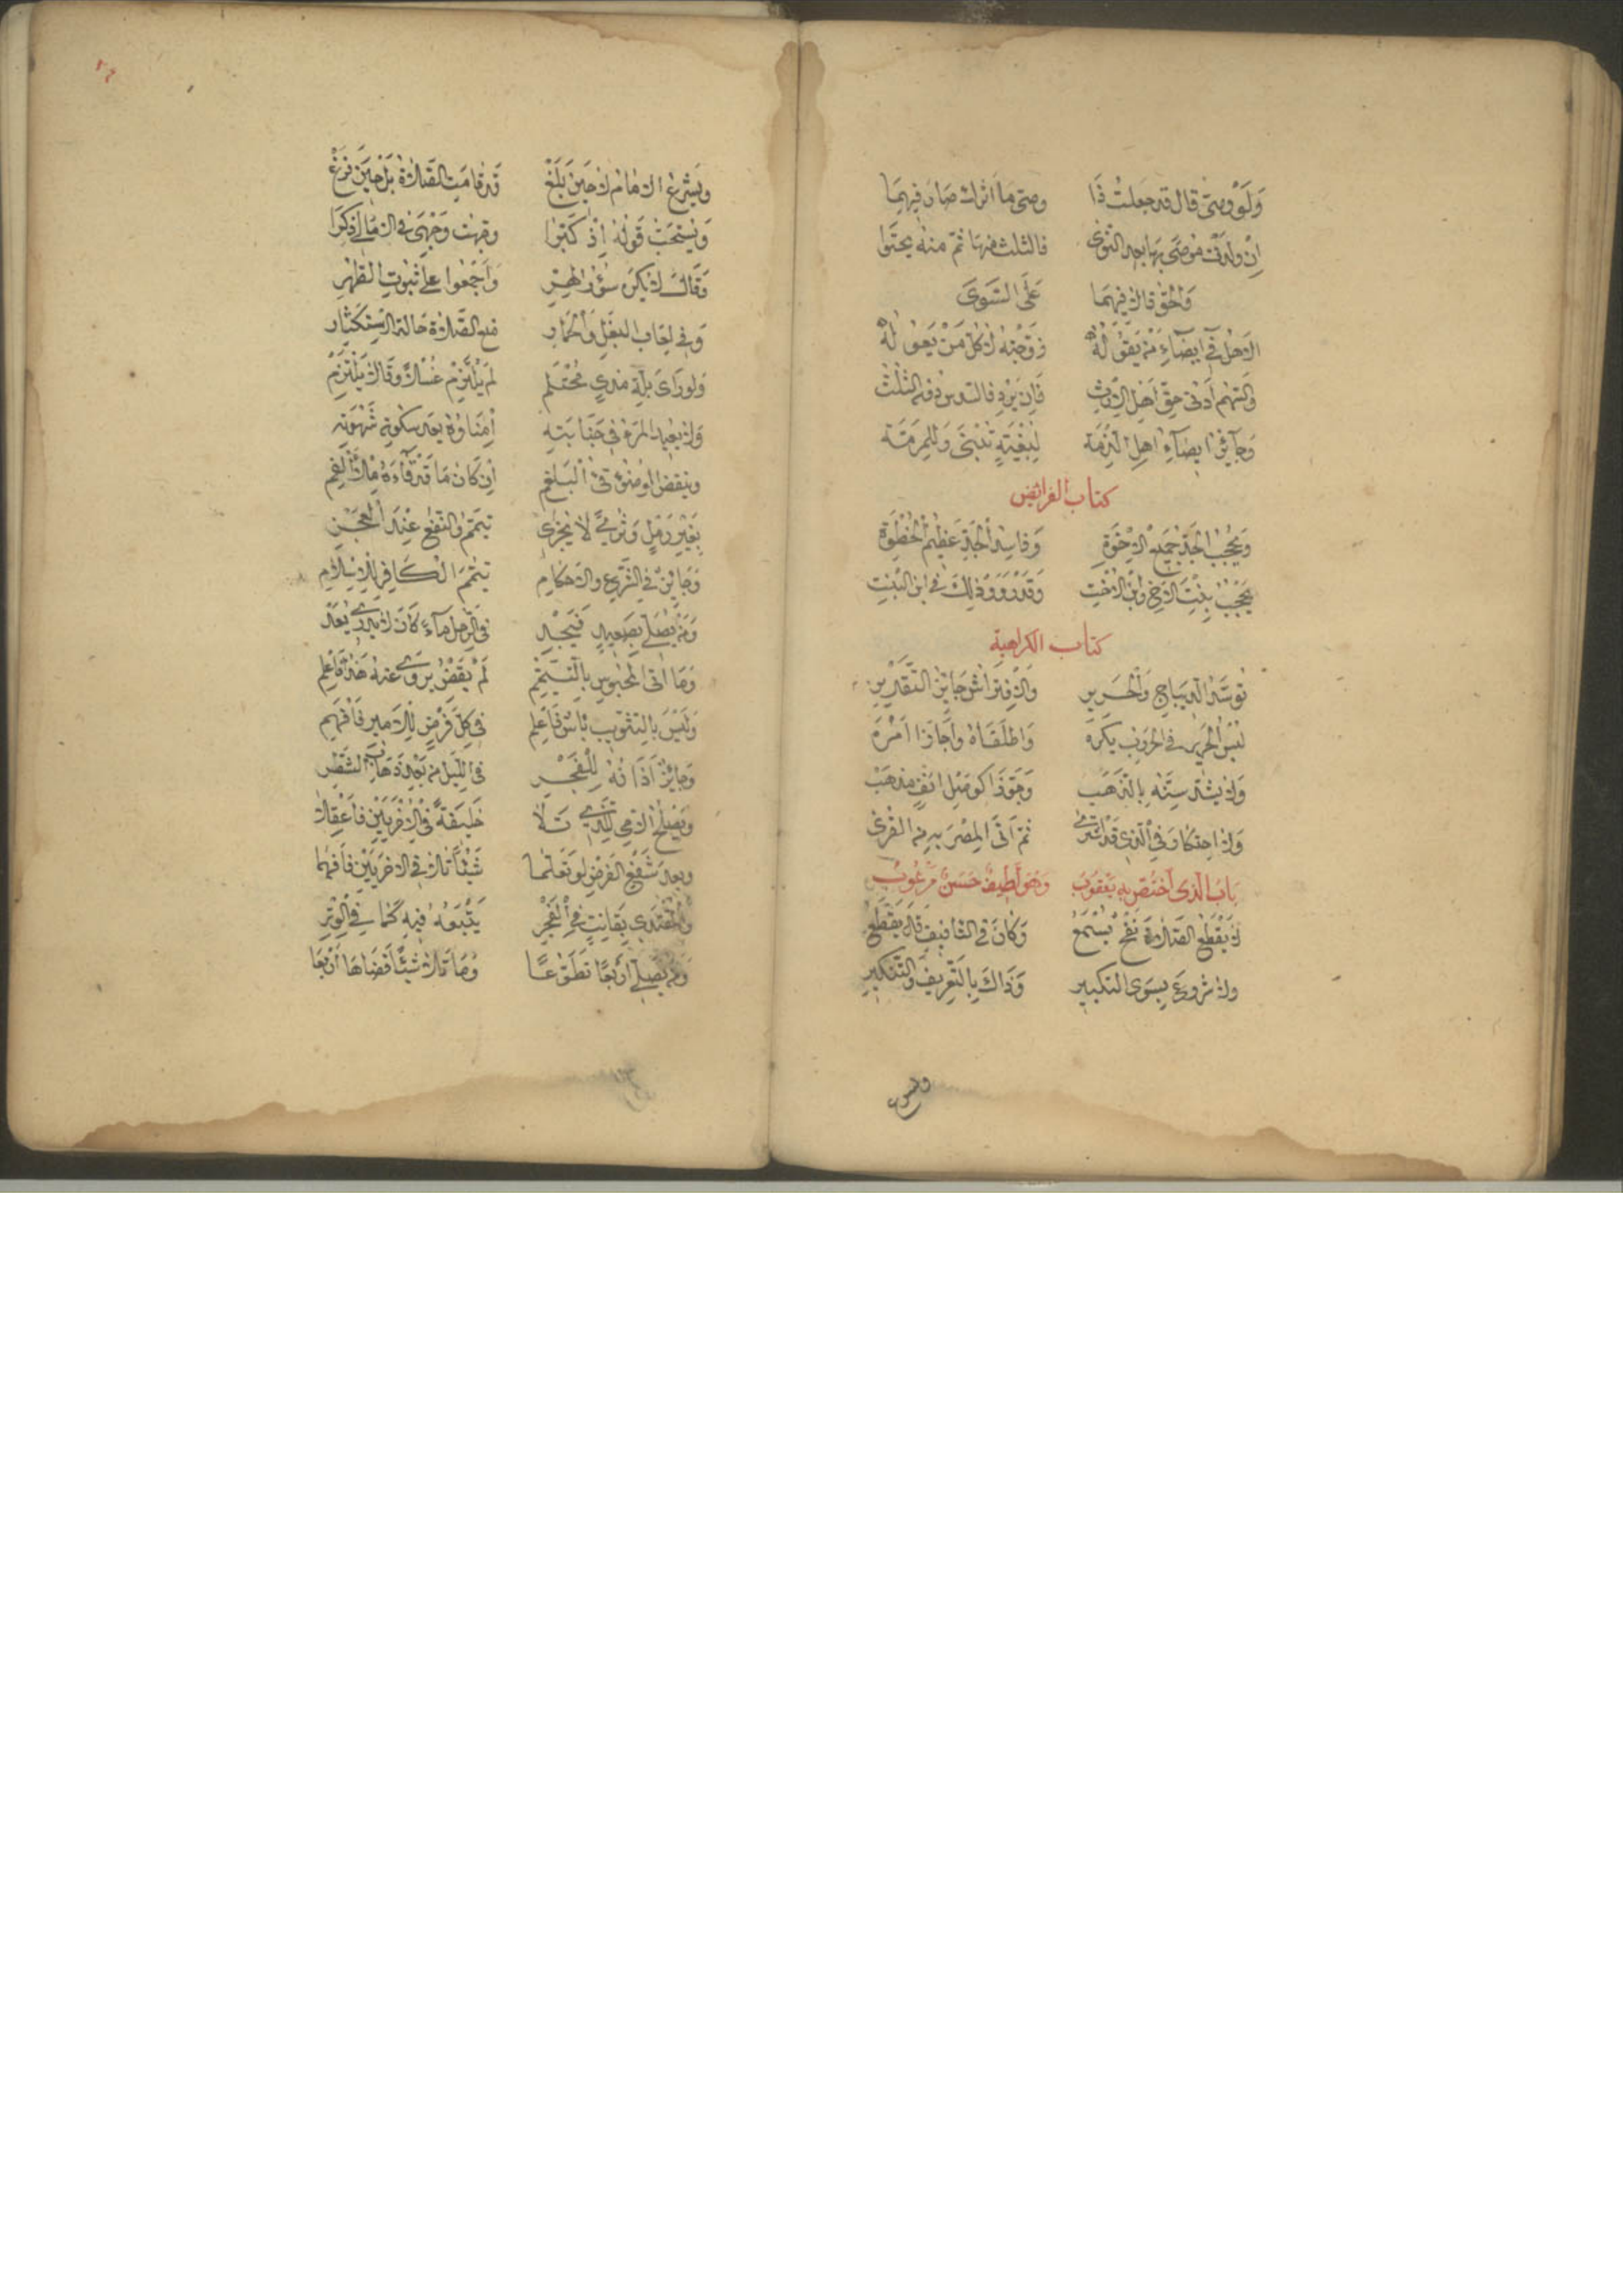 وَلَوْ وصّى قال قد جعلتُ ذَا وصيّ ما اترك صار فيهما
اِنْ ولدتْ موصًى بها بعد التّوى فالثلث منها ثمّ منه يحتوا
وَالحقّ قالا فيهما عَلَى السَّوى
الاهل في ايصاءِ من يقول لهُ زوجته لا كلّ مَنْ يعوله
والسّهم أدنى حقّ اهل الارث فَاِن يزد فالسدس دون الثلث
وَجايز ايصاء اهل الذّمة لبيعةٍ تبنى وللمرمّة
كتاب الفرائض
وَيحجب الجدّ جميع الاخوة وفاسد الجدّ عظيم الخطوة
يحجب بنت الاخ وابن الاخت وقد رووا ذلك في ابن البنت
كتاب الكراهية
توسّد الديباج والحرير والافتراش جايز التقدير
لبس الحرير في الحروب يكره واطلقاه واجازا امره
ولا يشد سنّه بالذّهب وجوّزا كوصل انف مذهب
ولا احتكار في الذي قد اشترى ثم اتى المصر به من القرى
باب الذي اختصّ به يعقوب وهو لطيف حسن مرغوب
لا يقطع الصلاة نفخ يسمع وكان في التأفيف قال يقطع
ولا شروع بسوى التكبير وذاك بالتعريف والتنكير
وليس
ويشرع الامام لا حين بلغ قد قامت الصّلاة بل حين فرغ
ويستحبّ قوله اذ كبّرا وجهت وجهي في الامالي ذكرا
وقال لا يكره سؤر الهرّ واجمعوا على ثبوت الطهر
وفي لعاب البغل والحمار منع الصّلاة حالة استكثار
ولو راى بلّة مذي محتلم لم يلتزم غسلا وقالا يلتزم
ولا يعيد المرء في جنابته امناؤه بعد سكون شهوته
وينقض الوضوء قيء البلغم ان كان ما قد قاءه ملأ الفم
بغير رمل وثرى لا يجزي تيمّم والنقع عند العجز
وجايز في الشرع والاحكام تيمّم الكافر للاسلام
ومن يصلّي بصعيد فيجد في الرحل ماء كان لا يدري يعد
وما اتى المحبوس بالتيمّم لم يقض يروى عنه هذا فاعلم
وليس بالتثويب باس فاعلم في كلّ فرض للامير فافهم
وجايز اذانه للفجر في الليل من بعد ذهاب الشطر
ويصلح الامي للّذي تلا خليفة في الاخريين فاعقلا
وبعد شفع الفرض لو تعلّما شيئا تلا في الاخريين فافهما
والمقتدي بقانت في الفجر يتبعه فيه كما في الوتر
ومن يصلّي اربعا تطوّعا وما تلا شيئا قضاها اربعا